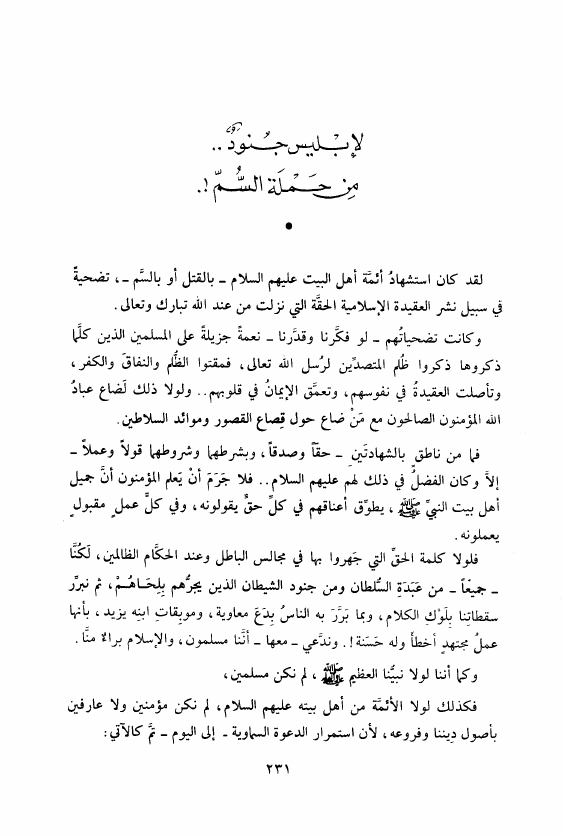 لإبليس جنودٌ ..
من حملة السُّمّ !.
•
لقد كان استشهادُ أئمَّة أهل البيت عليهم السلام ـ بالقتل أو بالسَّم ـ ، تضحيةً
في سبيل نشر العقيدة الإسلامية الحقَّة التي نزلت من عند الله تبارك وتعالى .
وكانت تضحياتُهم ـ لو فكَّرنا وقدَّرنا ـ نعمةً جزيلةً على المسلمين الذين كلَّما
ذكروها ذكروا ظُلم المتصدِّين لرُسل الله تعالى، فمقتوا الظُّلم والنفاقَ والكفر ،
وتأصلت العقيدةُ في نفوسهم، وتعمَّق الإيمانُ في قلوبهم . . ولولا ذلك لَضاع عبادُ
الله المؤمنون الصالحون مع مَنْ ضاع حول قِصاع القصور وموائد السلاطين .
فما من ناطقٍ بالشهادتَين ـ حقاً وصدقاً، وبشرطها وشروطها قولاً وعملاً ـ
إلاَّ وكان الفضلُ في ذلك لهم عليهم السلام . . فلا جَرَمَ أنْ يَعلم المؤمنون أنَّ جميل
أهل بيت النبيِّ ﷺ ، يطوِّق أعناقهم في كلِّ حقٍّ يقولونه، وفي كلِّ عملٍ مقبولٍ
يعملونه .
فلولا كلمة الحقِّ التي جَهروا بها في مجالس الباطل وعند الحكَّام الظالمين، لَكُنَّا
ـ جميعاً ـ من عَبَدَةِ السُّلطان ومن جنود الشيطان الذين يجرُّهم بِلِحَاهُمْ، ثم نبرِّر
سقطاتنا بِلَوْكِ الكلام، وبما بَرَّرَ به الناسُ بِدَعَ معاوية، وموبِقاتِ ابنِه يزيد، بأنها
عملُ مجتهدٍ أخطأَ وله حَسَنة ! . وندَّعي ـ معها ـ أنَّنا مسلمون، والإسلام براءٌ منَّا .
وكما أننا لولا نبيُّنا العظيم ﷺ ، لم نكن مسلمين،
فكذلك لولا الأئمَّة من أهل بيته عليهم السلام، لم نكن مؤمنين ولا عارفين
بأصول دِيننا وفروعه، لأن استمرار الدعوة السماوية ـ إلى اليوم ـ تمَّ كالآتي :
٢٣١